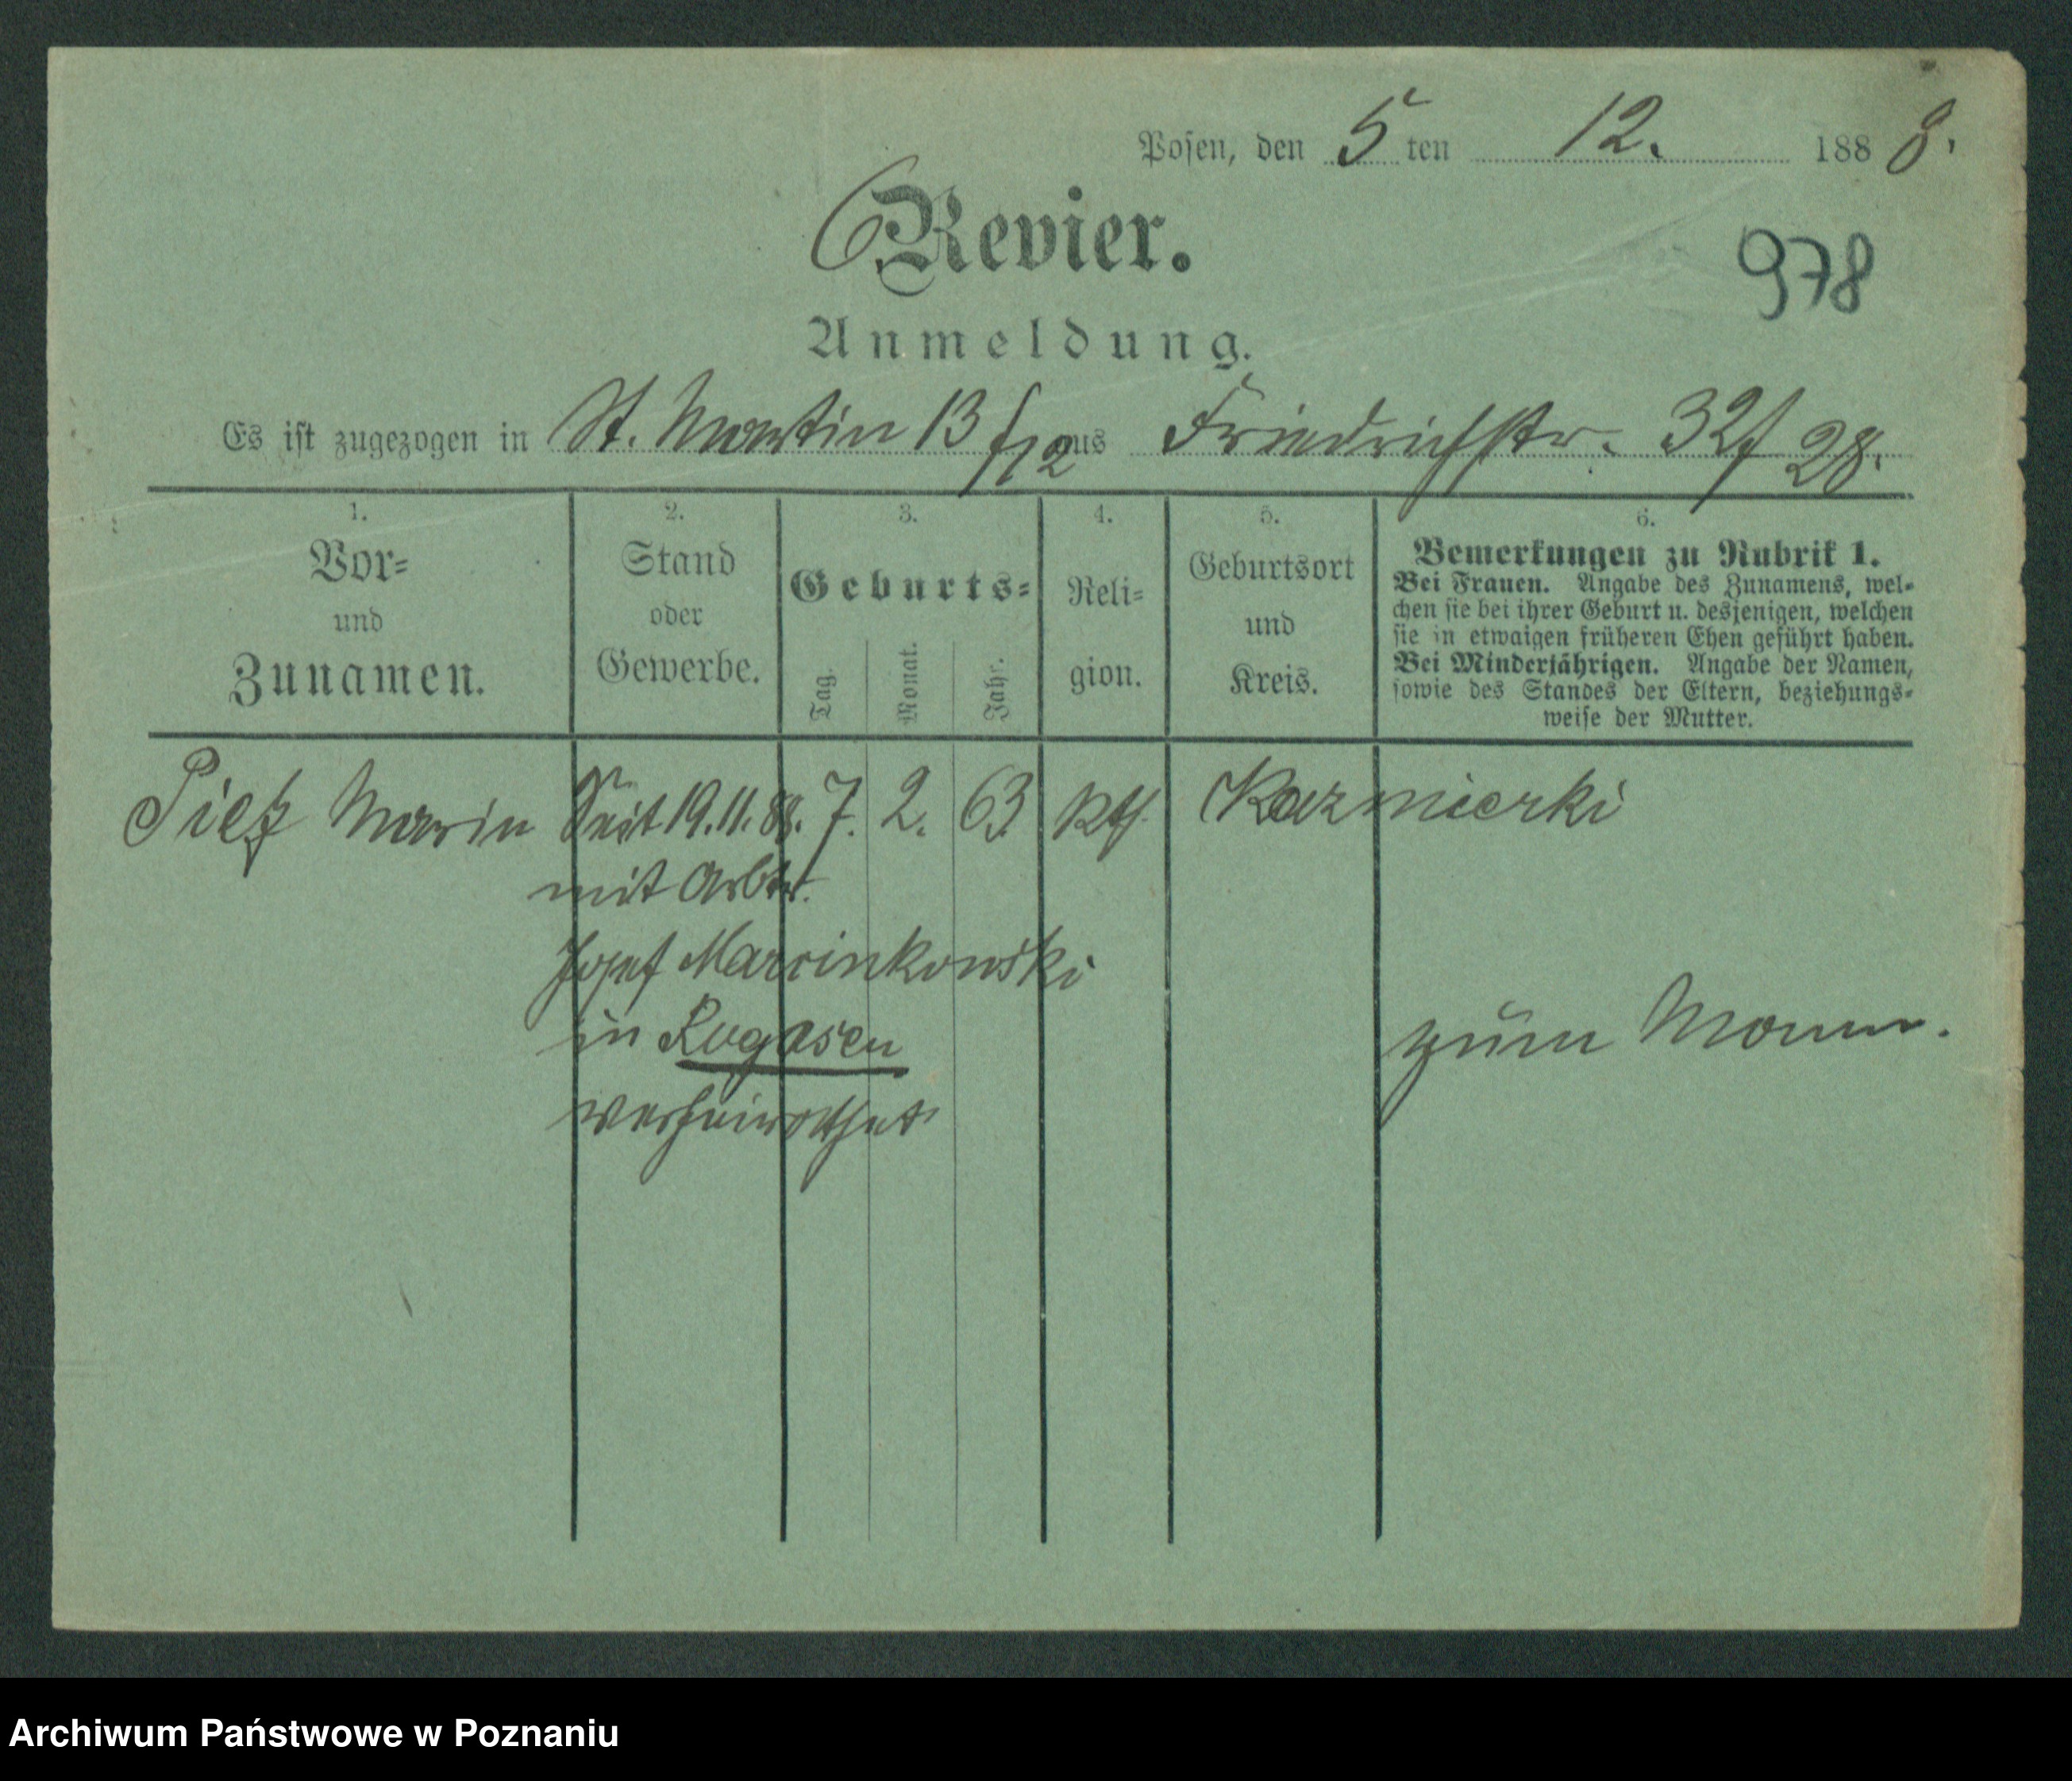 Posen, den 5 ten 12. 1888.
6 Revier.
978
Anmeldung.
Es ist zugezogen in St. Martin 13 f/12 aus Friedrichstr. 32 f/28.
1. 2. 3. 4. 5. 6.
Vor= und Zunamen.
Stand oder Gewerbe.
Geburts=
Tag. Monat. Jahr.
Reli=
gion.
Geburtsort und Kreis.
Bemerkungen zu Rubrik 1.
Bei Frauen. Angabe des Zunamens, wel=
chen sie bei ihrer Geburt u. desjenigen, welchen
sie in etwaigen früheren Ehen geführt haben.
Bei Minderjährigen. Angabe der Namen,
sowie des Standes der Eltern, beziehungs=
weise der Mutter.
Marie Seit 19.11.88. 7. 2. 63 kth. Kazmierki
mit Arbtr.
Josef Marcinkowski
in Rogasen
verheirathet
zum Mann.
Archiwum Państwowe w Poznaniu